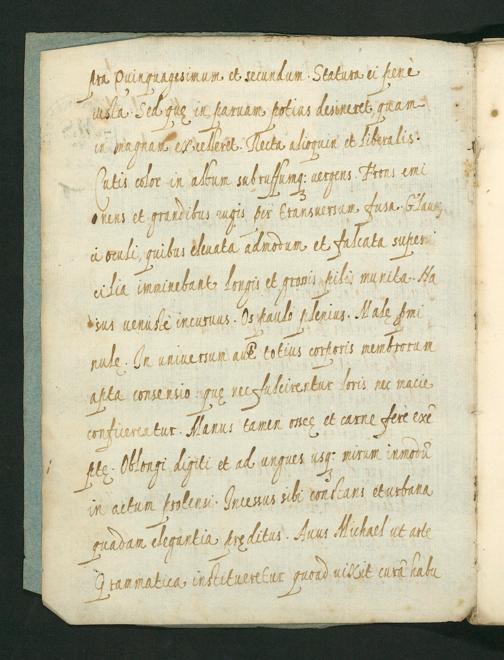 pra Quinquagesimum et secundum. Statura ei penè
iusta. Sed quę in paruam potius desineret, quam
in magnam excelleret. Recta alioquin et liberalis.
Cutis color in album subruffumq; uergens. Frons emi
nens et grandibus rugis per transuersum fusa. Glauc
i oculi, quibus eleuata admodum et falcata superci
cilia imminebant longis et grossis pilis munita. Na
sus uenustè incuruus. Os paulo plenius. Malę promi
nulę. In uniuersum autē totius corporis membrorum
apta consensio, quę nec fulcirentur loris nec macie
conficerentur. Manus tamen osseę et carne fere exē
ptę. Oblongi digiti et ad ungues usq; mirum inmodū
in actum protensi. Incessus sibi constans et urbana
quadam elegantia pręditus. Auus Michael ut arte
Grammatica institueretur quoad uixit curā habu